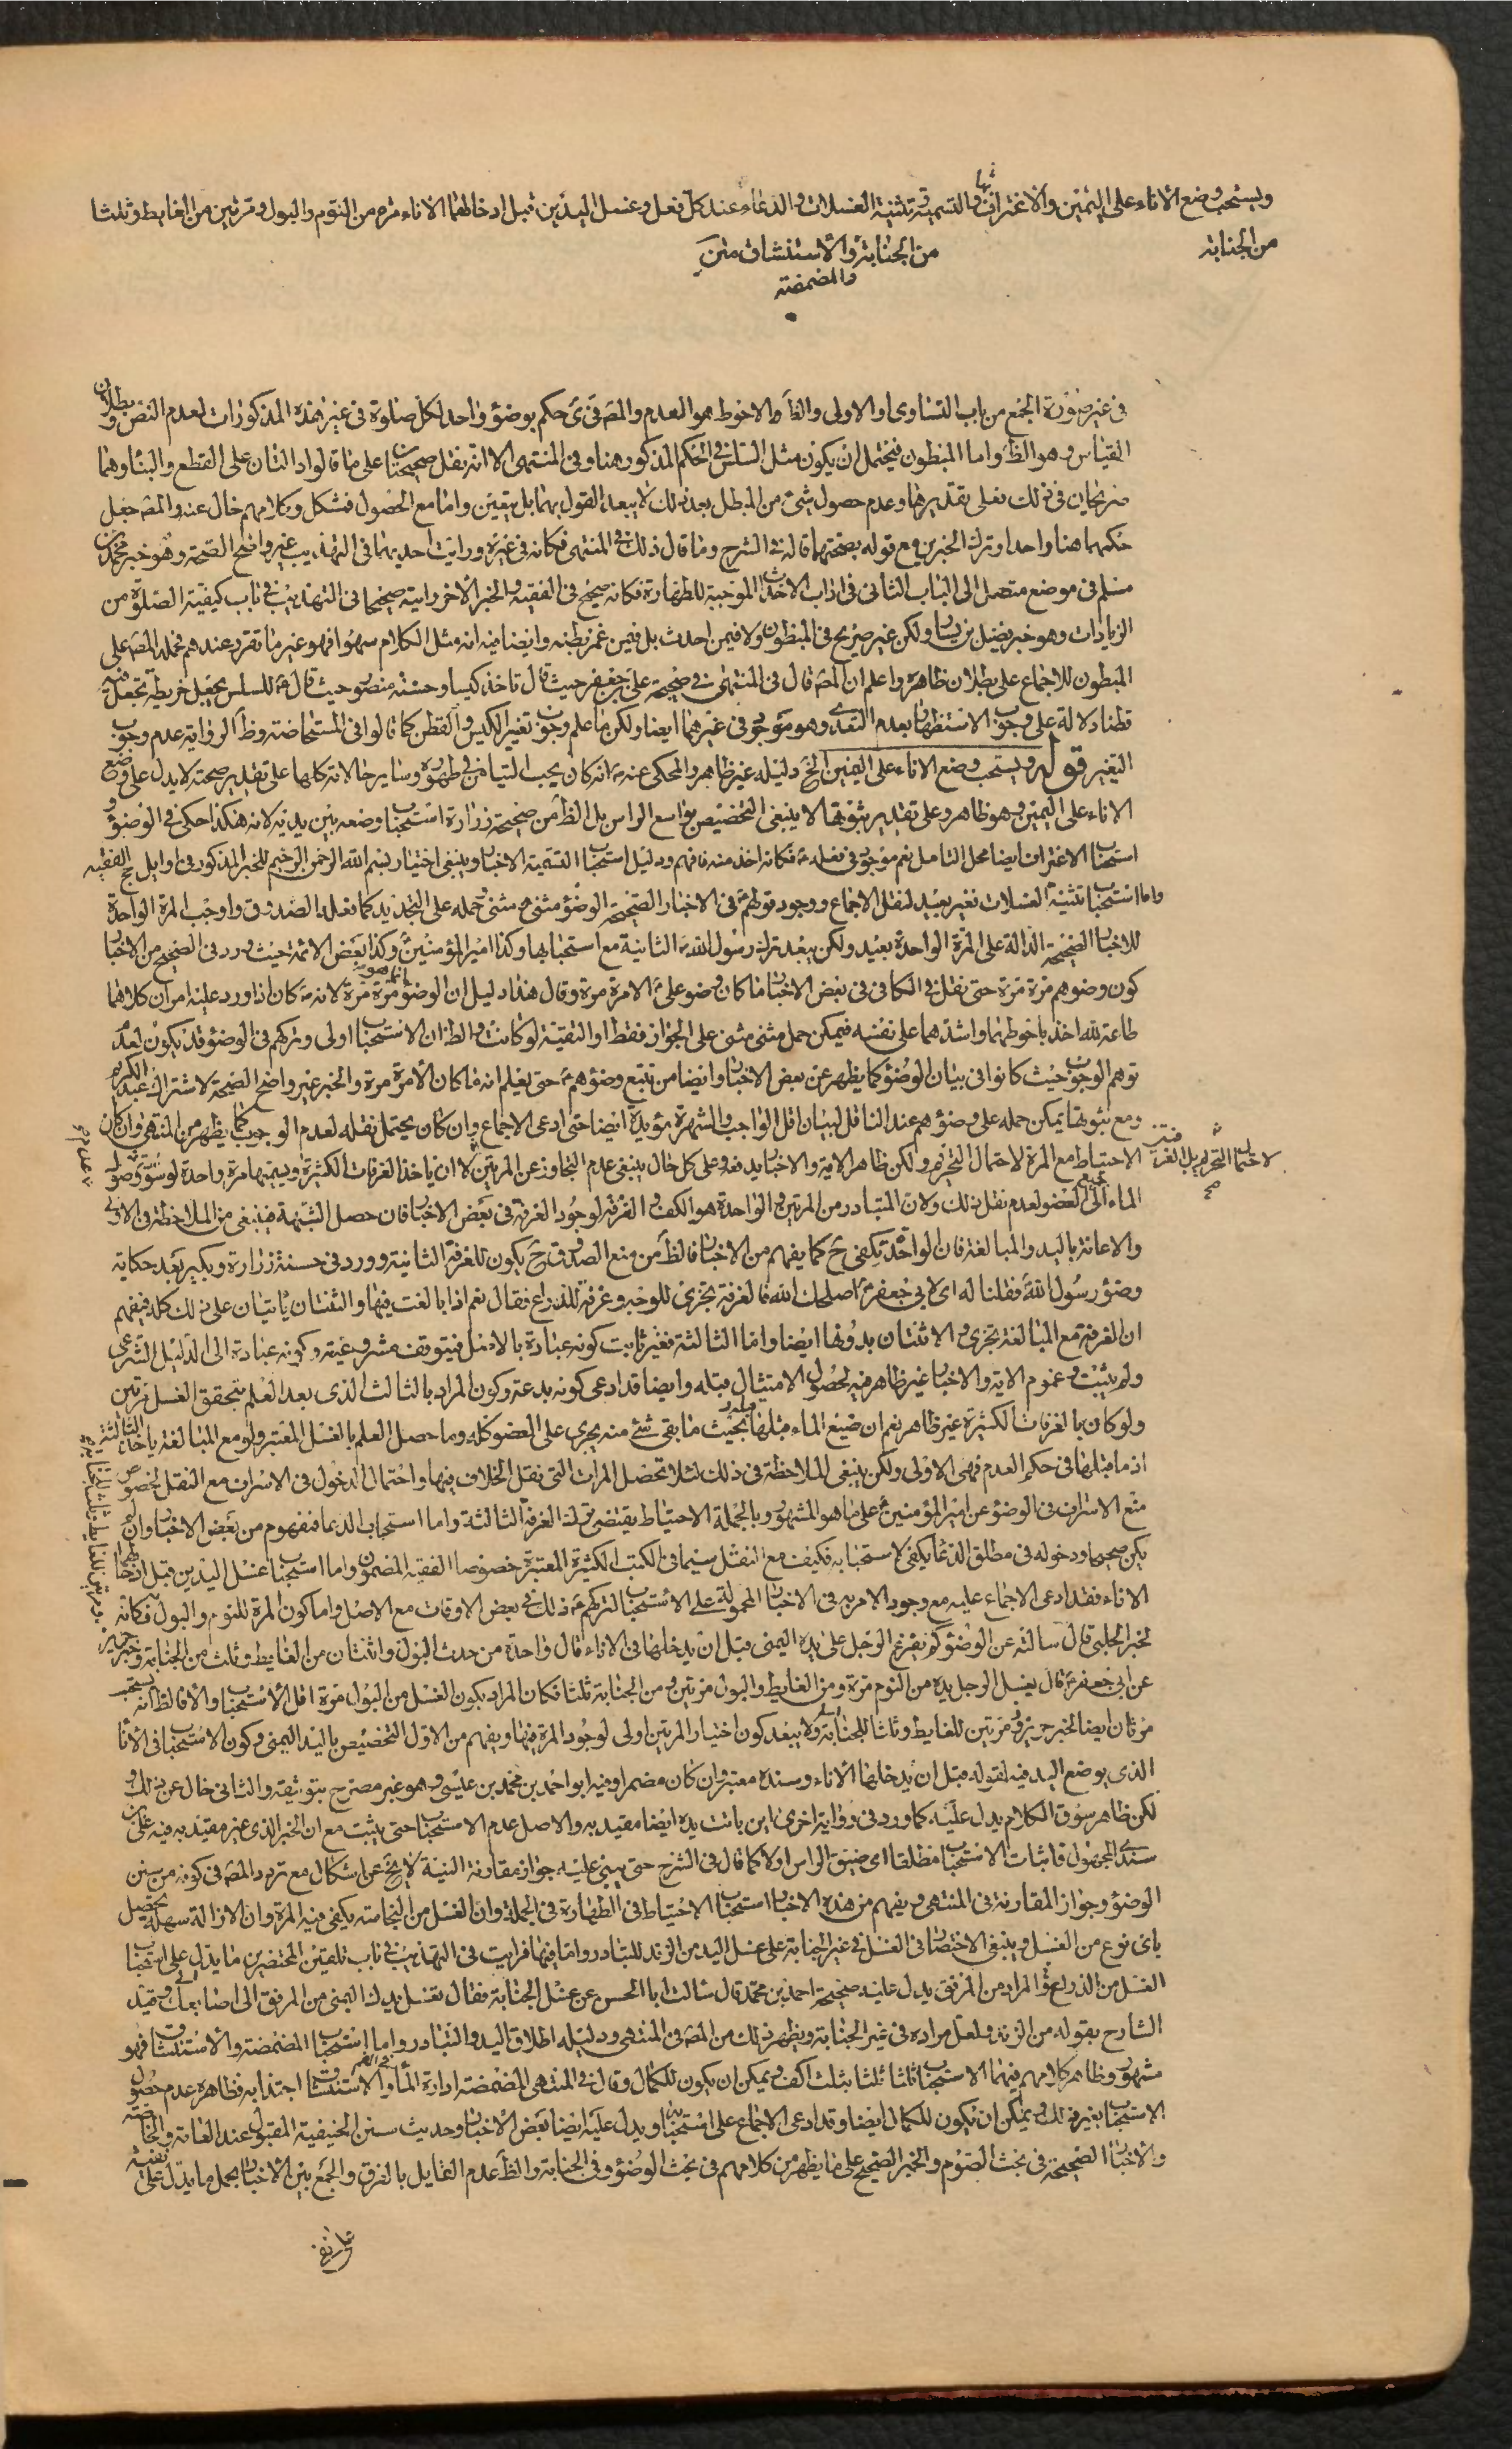 ويستحب وضع الاناء على اليمين والاغتراف بها والتسمية وتثنية الغسلات والدعاء عند كل فعل وغسل اليدين قبل ادخالهما الاناء مرة من النوم والبول ومرتين من الغايط وثلثا
من الجنابة
من الجنابة والاستنشاق
والمضمضة
في غير صورة الجمع من باب التساوى او الاولى والظَ والاحوط هو العدم والمصَ في حكم بوضوء واحد لكل صلوة في غير هذه المذكورات لعدم النص وبطلان
القياس وهو الظَ واما المبطون فيحتمل ان يكون مثل السلس في الحكم المذكور هنا وفي المنتهى الا انه نقل صحيحتا على ما قالوا دالتان على القطع والبناء وهما
صريحان في ذلك فعلى تقديرهما وعدم حصول شئ من المبطل بعد ذلك لا يبعد القول بهما بل يتعين واما مع الحصول فمشكل وكلامهم خال عنه والمصَ جعل
حكمهما هنا واحدا وترك الخبرين مع قوله بصحتهما قاله في الشرح وما قال ذلك في المنتهى فكانه في غيره ورايت احديهما في التهذيب غير واضح الصحة وهو خبر محمد بن
مسلم في موضع متصل الى الباب الثاني في اداب الاحداث الموجبة للطهارة فكانه صحيح في الفقيه والخبر الاخر رايته صحيحا في التهذيب في باب كيفية الصلوة من
الزيادات وهو خبر فضيل بن يسار ولكن غير صريح في المبطون ولا فيمن احدث بل فيمن غمز بطنه وايضا فيه انه مثل الكلام سهوا فهو غير ما تقرر عندهم فحمله المصَ على
المبطون للاجماع على بطلان ظاهره واعلم ان المصَ قال في المنتهى في صحيحة على بن جعفر حيث قال تاخذ كيسا وحسنة منصور حيث قال ع للسلس يجعل خريطة تجعل فيه
قطنا دلالة على وجوب الاستظهار بعدم التعدى وهو موجود في غيرهما ايضا ولكن ما علم وجوب تغيير الكيس والقطن كما قالوا في المستحاضة وظَ الرواية عدم وجوب
التغير قوله ويستحب وضع الاناء على اليمين الخ دليله غير ظاهر والمحكى عنه ص انه كان يحب التيامن في طهوره وساير حالاته كلها على تقدير صحته لا يدل على وضع
الاناء على اليمين وهو ظاهر وعلى تقدير ثبوتها لا ينبغي التخصيص بواسع الراس بل الظَ من صحيحة زرارة استحباب وضعه بين يديه لانه هكذا حكى في الوضوء و
استحباب الاغتراف ايضا محل التامل نعم موجود في فعله ع فكانه اخذ منه فافهم ودليل استحباب التسمية الاخبار وينبغي اختيار بسم الله الرحمن الرحيم للخبر المذكور في اوايل حج الفقيه
واما استحباب تثنية الغسلات فغير بعيد لنقل الاجماع ووجود قولهم ع في الاخبار الصحيحة الوضوء مثنى مثنى وحمله على التجديد كما فعله الصدوق واوجب المرة الواحدة
للاخبار الصحيحة الدالة على المرة الواحدة بعيد ولكن يبعد ترك رسول الله ص الثانية مع استحبابها وكذا امير المؤمنين ع وكذا بعض الائمة حيث ورد في الصحيح من الاخبار
كون وضوءهم مرة مرة حتى نقل في الكافي في بعض الاخبار ما كان وضوء على ع الا مرة مرة وقال هذا دليل ان الوضوء انما هو مرة مرة لانه ع كان اذا ورد عليه امران كلاهما
طاعة لله اخذ باحوطهما واشدهما على نفسه فيمكن حمل مثنى مثنى على الجواز فقط او التقية لو كانت والظَ ان الاستحباب اولى وتركهم في الوضوء قد يكون لعدم
توهم الوجوب حيث كانوا في بيان الوضوء كما يظهر عن بعض الاخبار وايضا من تتبع وضوءهم ع حتى يعلم انه ما كان الا مرة مرة والخبر غير واضح الصحة لاشتراك عبد الكريم
ومع ثبوتها يمكن حمله على وضوءهم عند الناقل لبيان اقل الواجب والشهرة مؤيدة ايضا حتى ادعى الاجماع وان كان يحتمل نقله لعدم الوجوب كما يظهر من المنتهى وان كان
الاحتياط مع المرة لاحتمال التحريم ولكن ظاهر الاية والاخبار يدفعه وعلى كل حال ينبغي عدم التجاوز عن المرتين لا ان ياخذ الغرفات الكثيرة ويسميها مرة واحدة لو سوى وصول
الماء الى جميع العضو لعدم نقل ذلك ولان المتبادر من المرتين والواحدة هو الكف والغرفة لوجود الغرفة في بعض الاخبار فان حصل الشبهة فينبغي من الملاحظة في الاولى
والاعانة باليد والمبالغة فان الواحدة تكفى ح كما يفهم من الاخبار فالظَ من منع الصدوق ح يكون للغرفة الثانية وورد في حسنة زرارة وبكير بعد حكاية
وضوء رسول الله ص فقلنا له اى لابي جعفر ع اصلحك الله فالغرفة تجزى للوجه وغرفة للذراع فقال نعم اذا بالغت فيها والثنتان ياتيان على ذلك كله فيفهم
ان الغرفة مع المبالغة تجزى والاثنتان بدونها ايضا واما الثالثة فغير ثابت كونه عبادة بالاصل فيتوقف مشروعيته وكونه عبادة الى الدليل الشرعى
ولم يثبت وعموم الاية والاخبار غير ظاهر فيه لحصول الامتثال قبله وايضا قد ادعى كونه بدعة وكون المراد بالثالث الذى بعد العلم بتحقق الغسل مرتين
ولو كان بالغرفات الكثيرة غير ظاهر نعم ان ضيع الماء قبلها بحيث ما بقى شئ منه يجرى على العضو كله وما حصل العلم بالغسل المعتبر ولو مع المبالغة ياخذ الثالثة
اذ ما قبلها في حكم العدم فهى الاولى ولكن ينبغي الملاحظة في ذلك لئلا تحصل المرات التى نقل الخلاف فيها واحتمال الدخول في الاسراف مع النقل بخصوص
منع الاسراف في الوضوء عن امير المؤمنين ع على ما هو المشهور وبالجملة الاحتياط يقتضى ترك الغرفة الثالثة واما استحباب الدعا فمفهوم من بعض الاخبار وان لم
يكن صحيحا ودخوله في مطلق الدعا يكفى لاستحبابه فكيف مع النقل سيما في الكتب الكثيرة المعتبرة خصوصا الفقيه المضمون واما استحباب غسل اليدين قبل ادخالهما
الاناء فقد ادعى الاجماع عليه مع وجود الامر به في الاخبار المحمولة على الاستحباب لتركهم ع ذلك في بعض الاوقات مع الاصل واما كون المرة للنوم والبول فكانه
لخبر الحلبى قال سالته عن الوضوء كم يفرغ الرجل على يده اليمنى قبل ان يدخلها في الاناء قال واحدة من حدث البول واثنتان من الغايط وثلث من الجنابة وخبر حريز
عن ابي جعفر ع قال يغسل الرجل يده من النوم مرة ومن الغايط والبول مرتين ومن الجنابة ثلثا فكان المراد بكون الغسل من البول مرة اقل الاستحباب والا فالظَ انه يستحب
مرتان ايضا لخبر حريز ومرتين للغايط وثلثا للجنابة ولا يبعد كون اختيار المرتين اولى لوجود المرة فيها ويفهم من الاول التخصيص باليد اليمنى وكون الاستحباب في الاناء
الذى يوضع اليد فيه لقوله قبل ان يدخلها الاناء وسنده معتبر وان كان مضمرا وفيه ابو احمد بن محمد بن عيسى وهو غير مصرح بتوثيقه والثاني خال عن ذلك و
لكن ظاهر سوق الكلام يدل عليه كما ورد في رواية اخرى اين باتت يده ايضا مقيد به والاصل عدم الاستحباب حتى يثبت مع ان الخبر الذى غير مقيد به فيه على بن
سندى المجهول فاثبات الاستحباب مطلقا اى ضيق الراس اولا كما قال في الشرح حتى يبنى عليه جواز مقارنة النية لا يخ عن اشكال مع تردد المصَ في كونه من سنن
الوضوء وجواز المقارنة في المنتهى ويفهم من هذه الاخبار استحباب الاحتياط في الطهارة في الجملة وان الغسل من النجاسة يكفى فيه المرة وان الازالة سهلة يحصل
باى نوع من الغسل وينبغي الاختصار في الغسل في غير الجنابة على غسل اليد من الزند للتبادر واما فيها فرايت في التهذيب في باب تلقين المحتضرين ما يدل على استحباب
الغسل من الذراع والمراد من المرفق يدل عليه صحيحة احمد بن محمد قال سالت ابا الحسن عن غسل الجنابة فقال تغسل يدك اليمنى من المرفق الى اصابعك وقيد
الشارح بقوله من الزند ولعل مراده في غير الجنابة ويظهر ذلك من المصَ في المنتهى ودليله اطلاق اليد والتبادر واما استحباب المضمضة والاستنشاق فهو
مشهور وظاهر كلامهم فيهما الاستحباب ثلثا ثلثا بثلث اكف ويمكن ان يكون للكمال وقال في المنتهى المضمضة ادارة الماء في الفم والاستنشاق اجتذابه فظاهره عدم حصول
الاستحباب بغير ذلك ويمكن ان يكون للكمال ايضا وقد ادعى الاجماع على استحبابه ويدل عليه ايضا بعض الاخبار وحديث سنن الحنيفية المقبول عند العامة والخاصة
والاخبار الصحيحة في بحث الصوم والخبر الصحيح على ما يظهر من كلامهم في بحث الوضوء وفي الجنابة والظَ عدم القايل بالفرق والجمع بين الاخبار بحمل ما يدل على نفيه